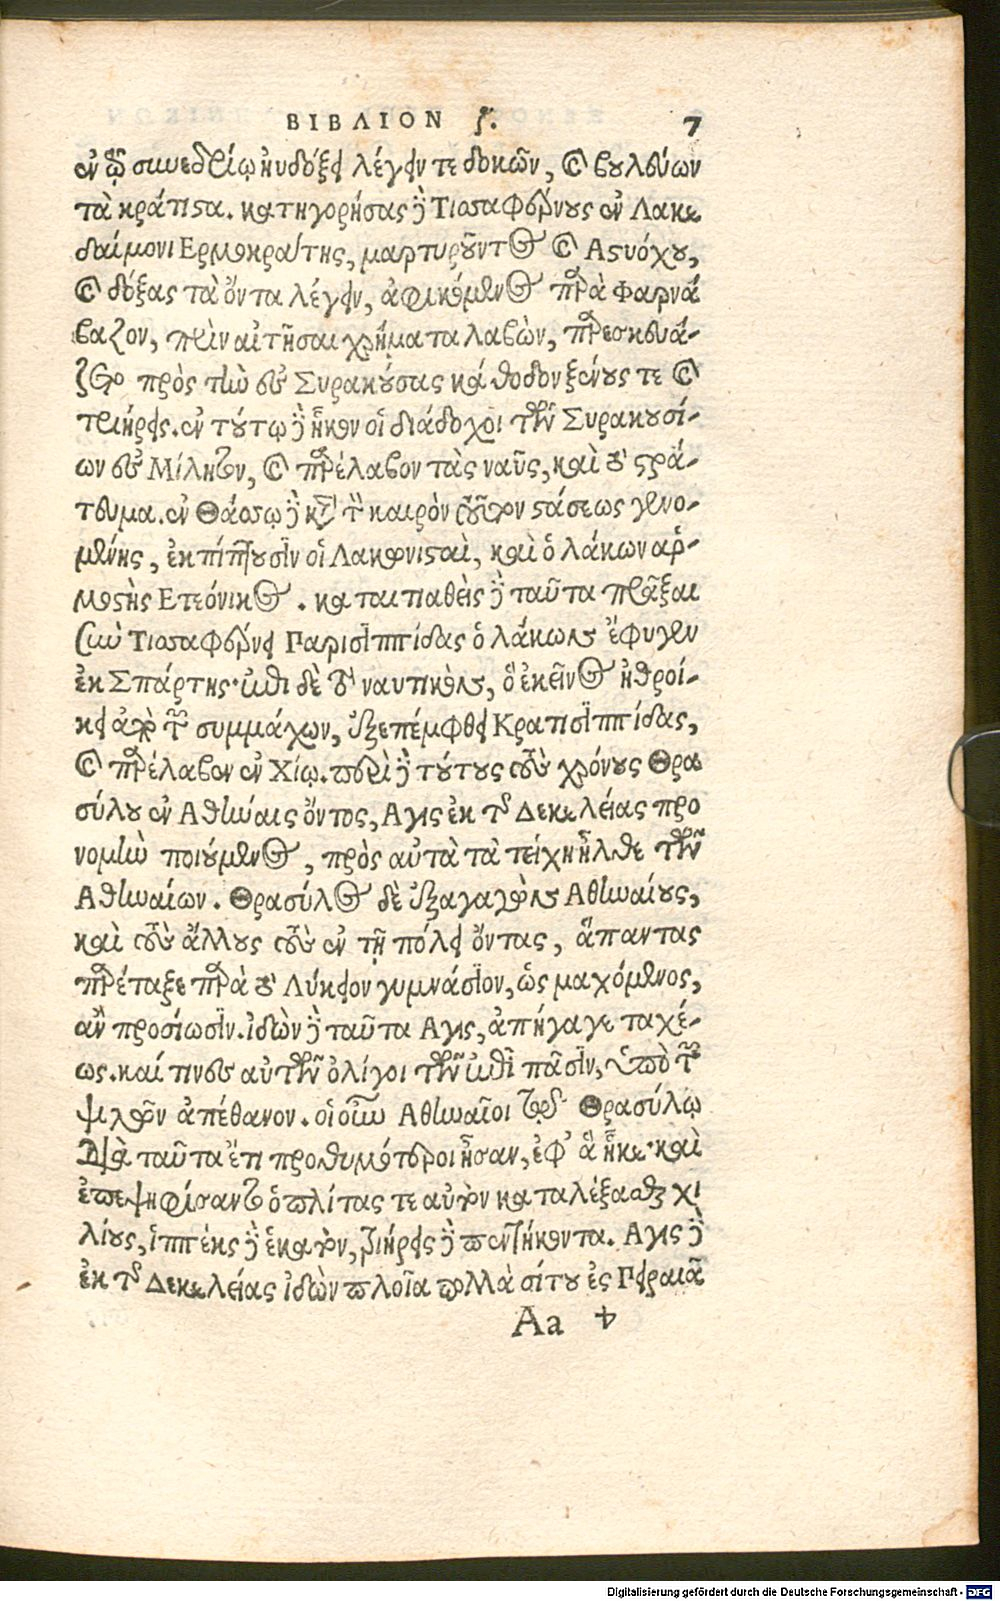 ΒΙΒΛΙΟΝ ϛ. 7
ἐν τῷ συνεδρίῳ ηὐδόξει λέγειν τε δοκῶν, καὶ βουλεύων
τὰ κράτιστα. κατηγορήσας δὲ Τισσαφέρνους ἐν Λακε
δαίμονι Ερμοκράτης, μαρτυροῦντος καὶ Αστυόχου,
καὶ δόξας τὰ ὄντα λέγειν, ἀφικόμενος παρὰ Φαρνά
βαζον, πρὶν αἰτῆσαι χρήματα λαβὼν, παρεσκευά-
ζετο πρὸς τὴν εἰς Συρακούσας κάθοδον ξένους τε καὶ
τριήρεις. ἐν τούτῳ δὲ ἧκον οἱ διάδοχοι τῶν Συρακουσί-
ων εἰς Μίλητον, καὶ παρέλαβον τὰς ναῦς, καὶ τὸ στρά-
τευμα. ἐν Θάσσῳ δὲ κατὰ τὸν καιρὸν τοῦτον στάσεως γενο-
μένης, ἐκπίπτουσιν οἱ Λακωνισταὶ, καὶ ὁ λάκων ἁρ-
μοστὴς Ετεόνικος. καταιτιαθεὶς δὲ ταῦτα πρᾶξαι
σὺν Τισσαφέρνει Παρισιππίδας ὁ λάκων ἔφυγεν
ἐκ Σπάρτης. ἐπὶ δὲ τὸ ναυτικὸν, ὃ ἐκεῖνος ἠθροί-
κει ἀπὸ τῶν συμμάχων, ἐξεπέμφθη Κρατισιππίδας,
καὶ παρέλαβεν ἐν Χίῳ. περὶ δὲ τούτους τοὺς χρόνους Θρα
σύλου ἐν Αθήναις ὄντος, Αγις ἐκ τῆς Δεκελείας προ
νομὴν ποιούμενος, πρὸς αὐτὰ τὰ τείχη ἦλθε τῶν
Αθηναίων. Θρασύλος δὲ ἐξαγαγὼν Αθηναίους,
καὶ τοὺς ἄλλους τοὺς ἐν τῇ πόλει ὄντας, ἅπαντας
παρέταξε παρὰ τὸ Λύκειον γυμνάσιον, ὡς μαχόμενος,
ἂν προσίωσιν. ἰδὼν δὲ ταῦτα Αγις, ἀπήγαγε ταχέ-
ως. καί τινες αὐτῶν ὀλίγοι τῶν ἐπὶ πᾶσιν, ὑπὸ τῶν
ψιλῶν ἀπέθανον. οἱ οὖν Αθηναῖοι τῷ Θρασύλῳ
διὰ ταῦτα ἔτι προθυμότεροι ἦσαν, ἐφ' ἃ ἧκε. καὶ
ἐπεψηφίσαντο ὁπλίτας τε αὐτὸν καταλέξασθαι χι
λίους, ἱππέας δὲ ἑκατὸν, τριήρεις δὲ πεντήκοντα. Αγις δὲ
ἐκ τῆς Δεκελείας ἰδὼν πλοῖα πολλὰ σίτου ἐς Πειραιᾶ
Aa 4
Digitalisierung gefördert durch die Deutsche Forschungsgemeinschaft - DFG